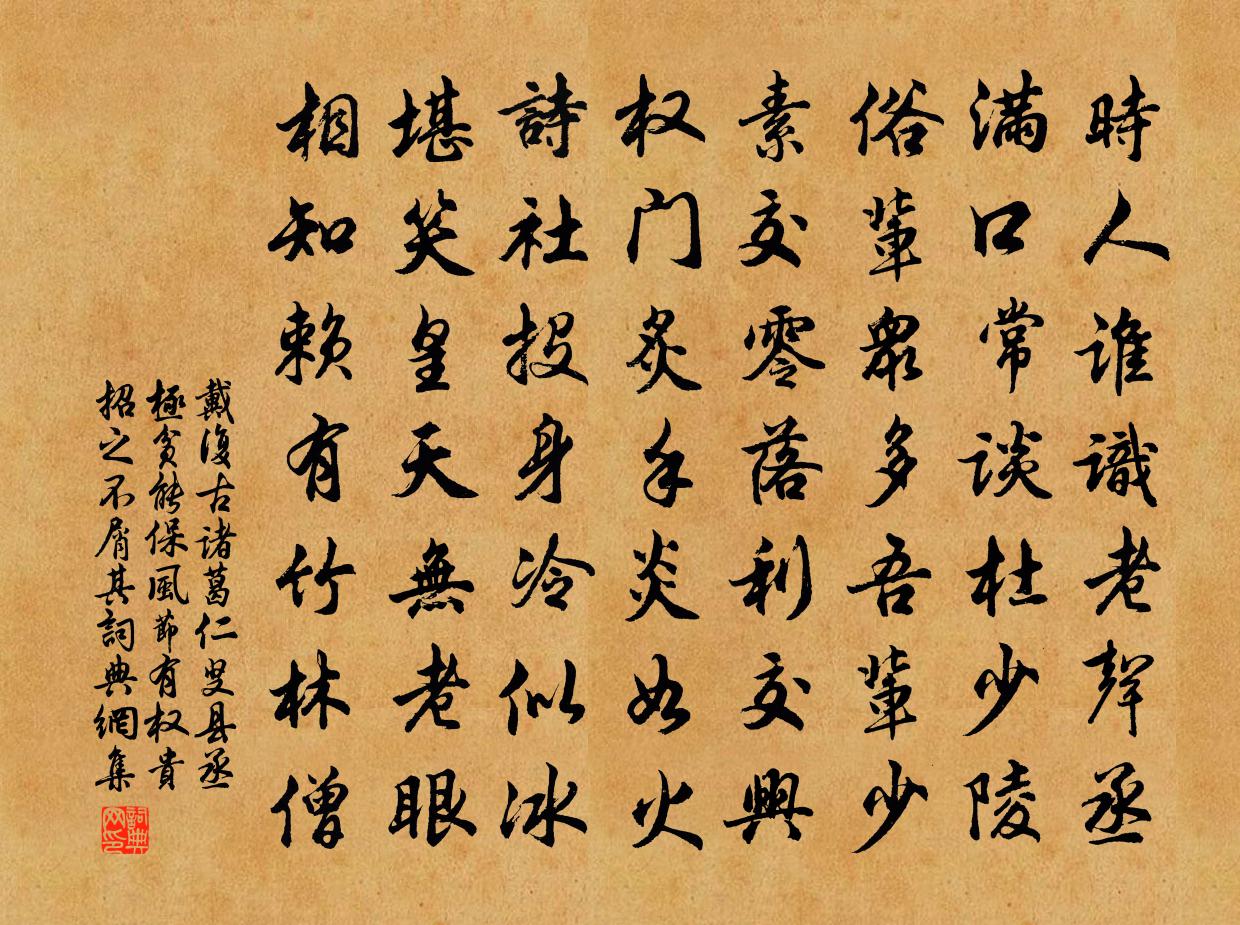 時人誰識老聾丞
滿口常談杜少陵
俗輩眾多吾輩少
素交零落利交興
权门炙手炎如火
詩社投身冷似冰
堪笑皇天無老眼
相知赖有竹林僧
戴復古诸葛仁叟县丞
極貧能保風節有权貴
招之不屑其詞典網集
詞典网印